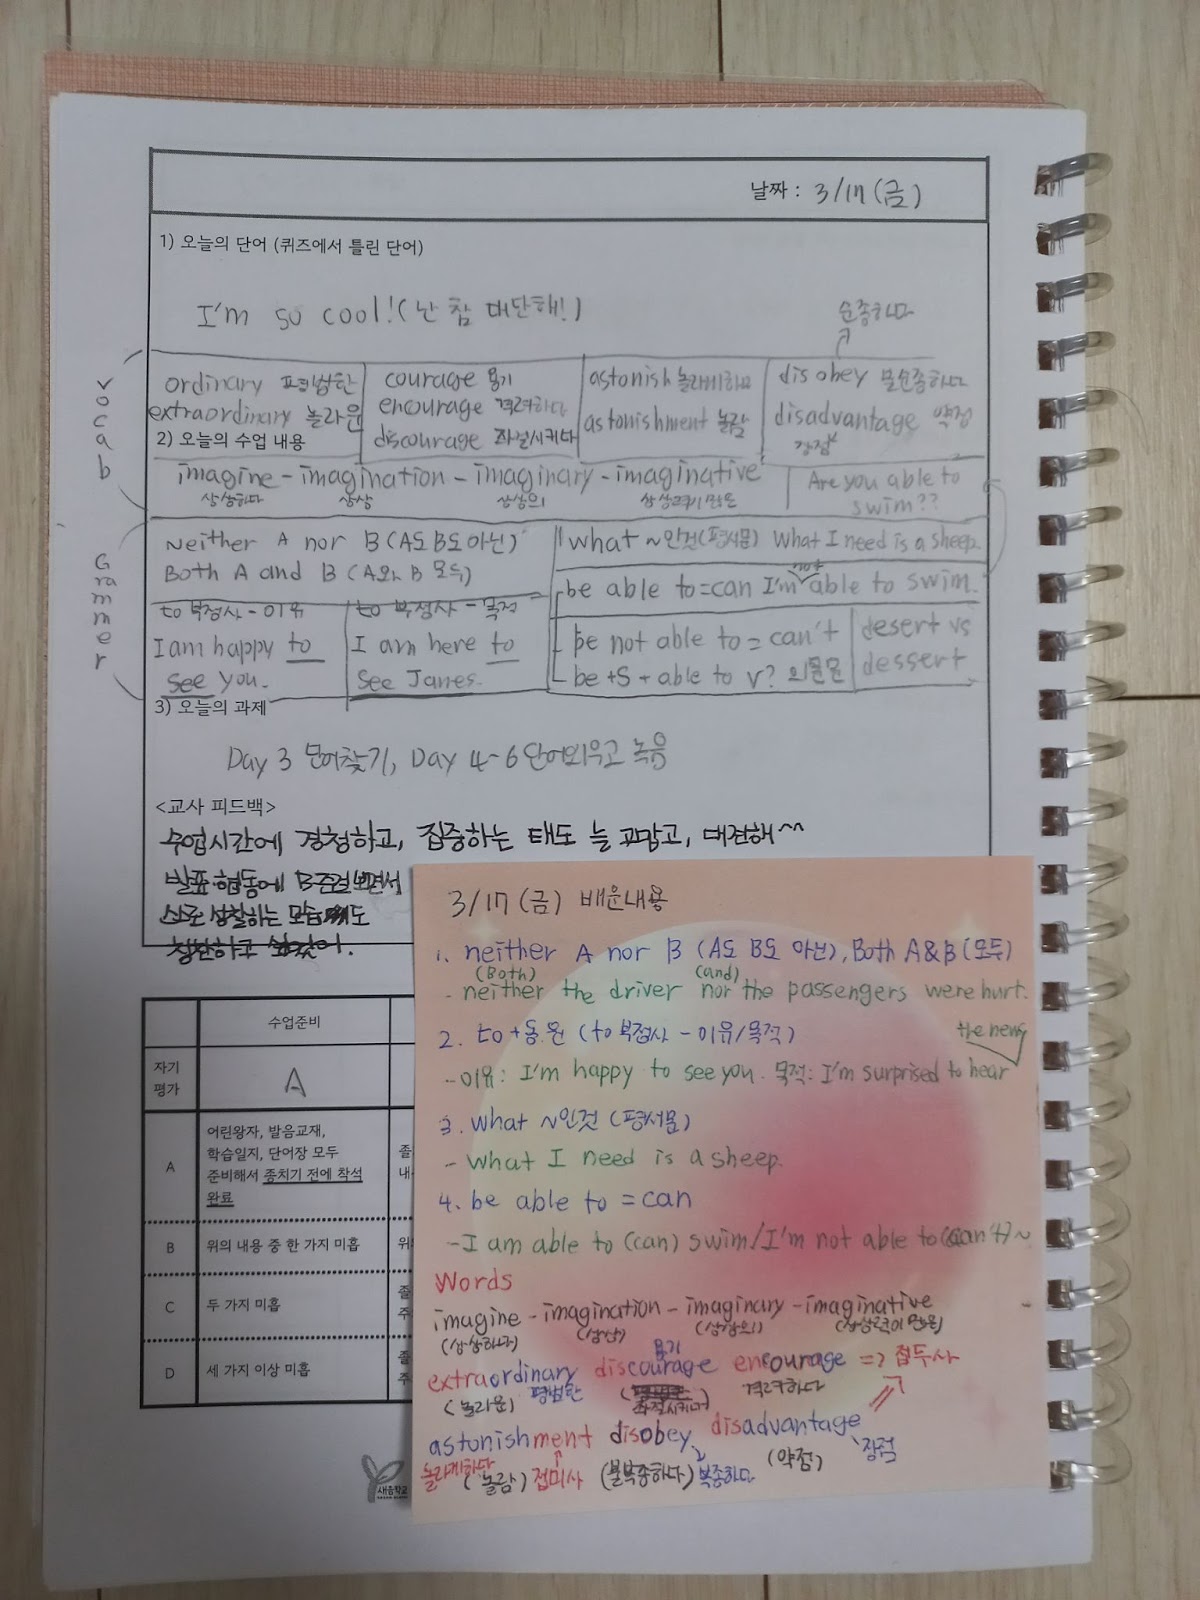 날짜 : 3/17(금)
1) 오늘의 단어 (퀴즈에서 틀린 단어)
I'm so cool! (난 참 대단해!)
순종하다
vocab
ordinary 평범한
extraordinary 놀라운
courage 용기
encourage 격려하다
discourage 좌절시키다
astonish 놀라게하다
astonishment 놀람
disobey 불순종하다
disadvantage 약점
강점
2) 오늘의 수업 내용
imagine - imagination - imaginary - imaginative
상상하다 상상 상상의 상상력이 많은
Are you able to
swim??
Grammer
Neither A nor B (A도 B도 아닌)
Both A and B (A와 B 모두)
what ~인것(평서문) What I need is a sheep.
be able to = can I'm not able to swim.
to 부정사 - 이유
I am happy to
see you.
to 부정사 - 목적
I am here to
see Janes.
be not able to = can't
be + S + able to V? 의문문
desert vs
dessert
3) 오늘의 과제
Day 3 단어찾기, Day 4-6 단어외우고 녹음
<교사 피드백>
수업시간에 경청하고, 집중하는 태도 늘 고맙고, 대견해^^
발표 협동에 B준걸 보면서
스스로 성찰하는 모습도
칭찬하고 싶었어.
수업준비
자기
평가
A
A
어린왕자, 발음교재,
학습일지, 단어장 모두
준비해서 종치기 전에 착석
완료
졸
내
B 위의 내용 중 한 가지 미흡 위
C 두 가지 미흡
졸
주
D 세 가지 이상 미흡
졸
주
새음학교
3/17 (금) 배운내용
1. neither A nor B (A도 B도 아닌), Both A&B (모두)
(Both) (and)
- neither the driver nor the passengers were hurt.
2. to + 동.원 (to 부정사 - 이유/목적)
the news
- 이유: I'm happy to see you. 목적: I'm surprised to hear
3. what ~인것 (평서문)
- what I need is a sheep.
4. be able to = can
- I am able to (can) swim / I'm not able to (can't) ~
Words
imagine - imagination - imaginary - imaginative
(상상하다) (상상) (상상의) (상상력이 많은)
용기
extraordinary discourage encourage => 접두사
(놀라운) 평범한 좌절시키다 격려하다
astonishment disobey disadvantage
놀라게하다 (놀람) 접미사 (불복종하다) 복종하다 (약점) 장점